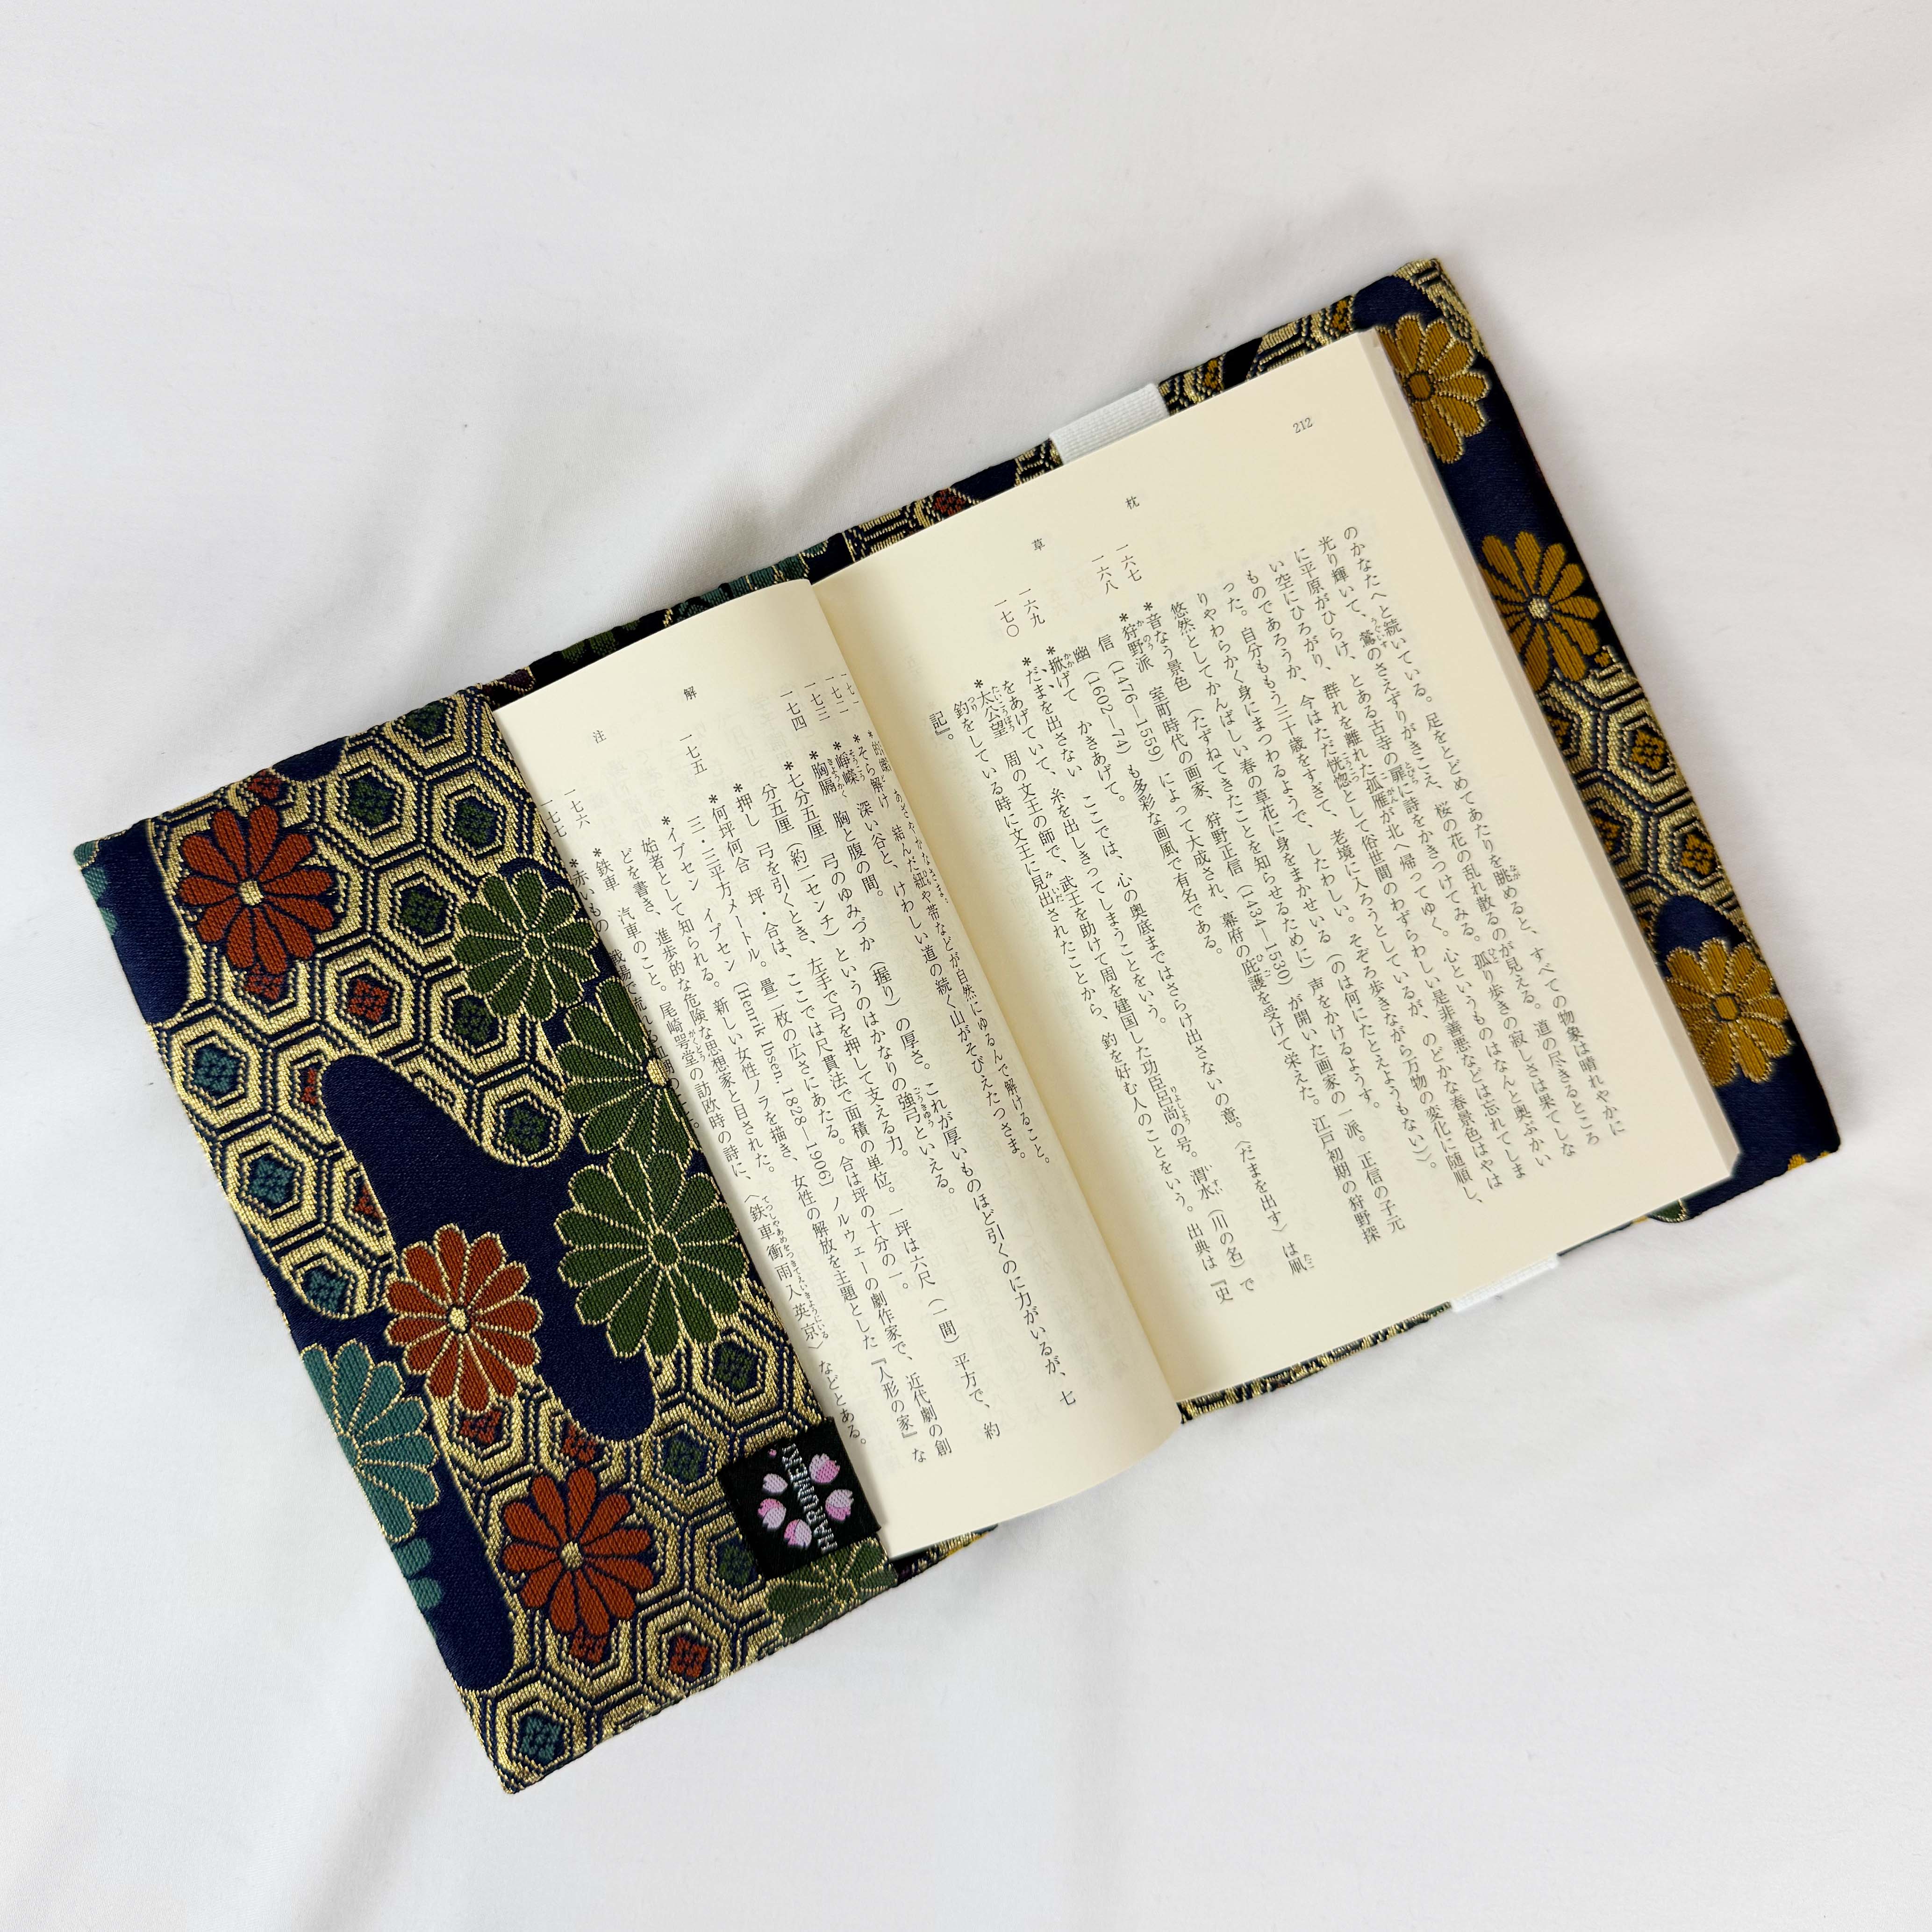 212
枕
草
のかなたへと続いている。足をとどめてあたりを眺めると、すべての物象は晴れやかに
光り輝いて、鶯のさえずりがきこえ、桜の花の乱れ散るのが見える。道の尽きるところ
に平原がひらけ、とある古寺の扉に詩をかきつけてみる。孤り歩きの寂しさは果てしな
い空にひろがり、群れを離れた孤雁が北へ帰ってゆく。心というものはなんと奥ぶかい
ものであろうか、今はただ恍惚として俗世間のわずらわしい是非善悪などは忘れてしま
った。自分ももう三十歳をすぎて、老境に入ろうとしているが、のどかな春景色はやは
りやわらかく身にまつわるようで、したわしい。そぞろ歩きながら万物の変化に随順し、
悠然としてかんばしい春の草花に身をまかせいる（のは何にたとえようもない）〉。
一六七 *音なう景色（たずねてきたことを知らせるために）声をかけるようす。
一六八 *狩野派 室町時代の画家、狩野正信（1434—1530）が開いた画家の一派。正信の子元
信（1476—1559）によって大成され、幕府の庇護を受けて栄えた。江戸初期の狩野探
幽（1602—74）も多彩な画風で有名である。
*掀げて かきあげて。
一六九 *だまを出さない ここでは、心の奥底まではさらけ出さないの意。〈だまを出す〉は凧
をあげていて、糸を出しきってしまうことをいう。
一七〇 *太公望 周の文王の師で、武王を助けて周を建国した功臣呂尚の号。渭水（川の名）で
釣をしている時に文王に見出されたことから、釣を好む人のことをいう。出典は『史
記』。
解
注
あざやかなさま。
*そら解け 結んだ紐や帯などが自然にゆるんで解けること。
一七三 *崢嶸 深い谷と、けわしい道の続く山がそびえたつさま。
一七四 *胸膈 胸と腹の間。
*七分五厘 弓のゆみづか（握り）の厚さ。これが厚いものほど引くのに力がいるが、七
分五厘（約二センチ）というのはかなりの強弓といえる。
*押し 弓を引くとき、左手で弓を押して支える力。
一七五 *何坪何合 坪・合は、ここでは尺貫法で面積の単位。一坪は六尺（一間）平方で、約
三・三平方メートル。畳二枚の広さにあたる。合は坪の十分の一。
*イプセン イプセン〔Henrik Ibsen. 1828—1906〕ノルウェーの劇作家で、近代劇の創
始者として知られる。新しい女性ノラを描き、女性の解放を主題とした『人形の家』な
どを書き、進歩的な危険な思想家と目された。
一七六 *鉄車 汽車のこと。尾崎咢堂の訪欧時の詩に、〈鉄車衝雨入英京〉などとある。
一七七 *赤いもの 戦場で流れる血潮のこと。
HARUMEKI